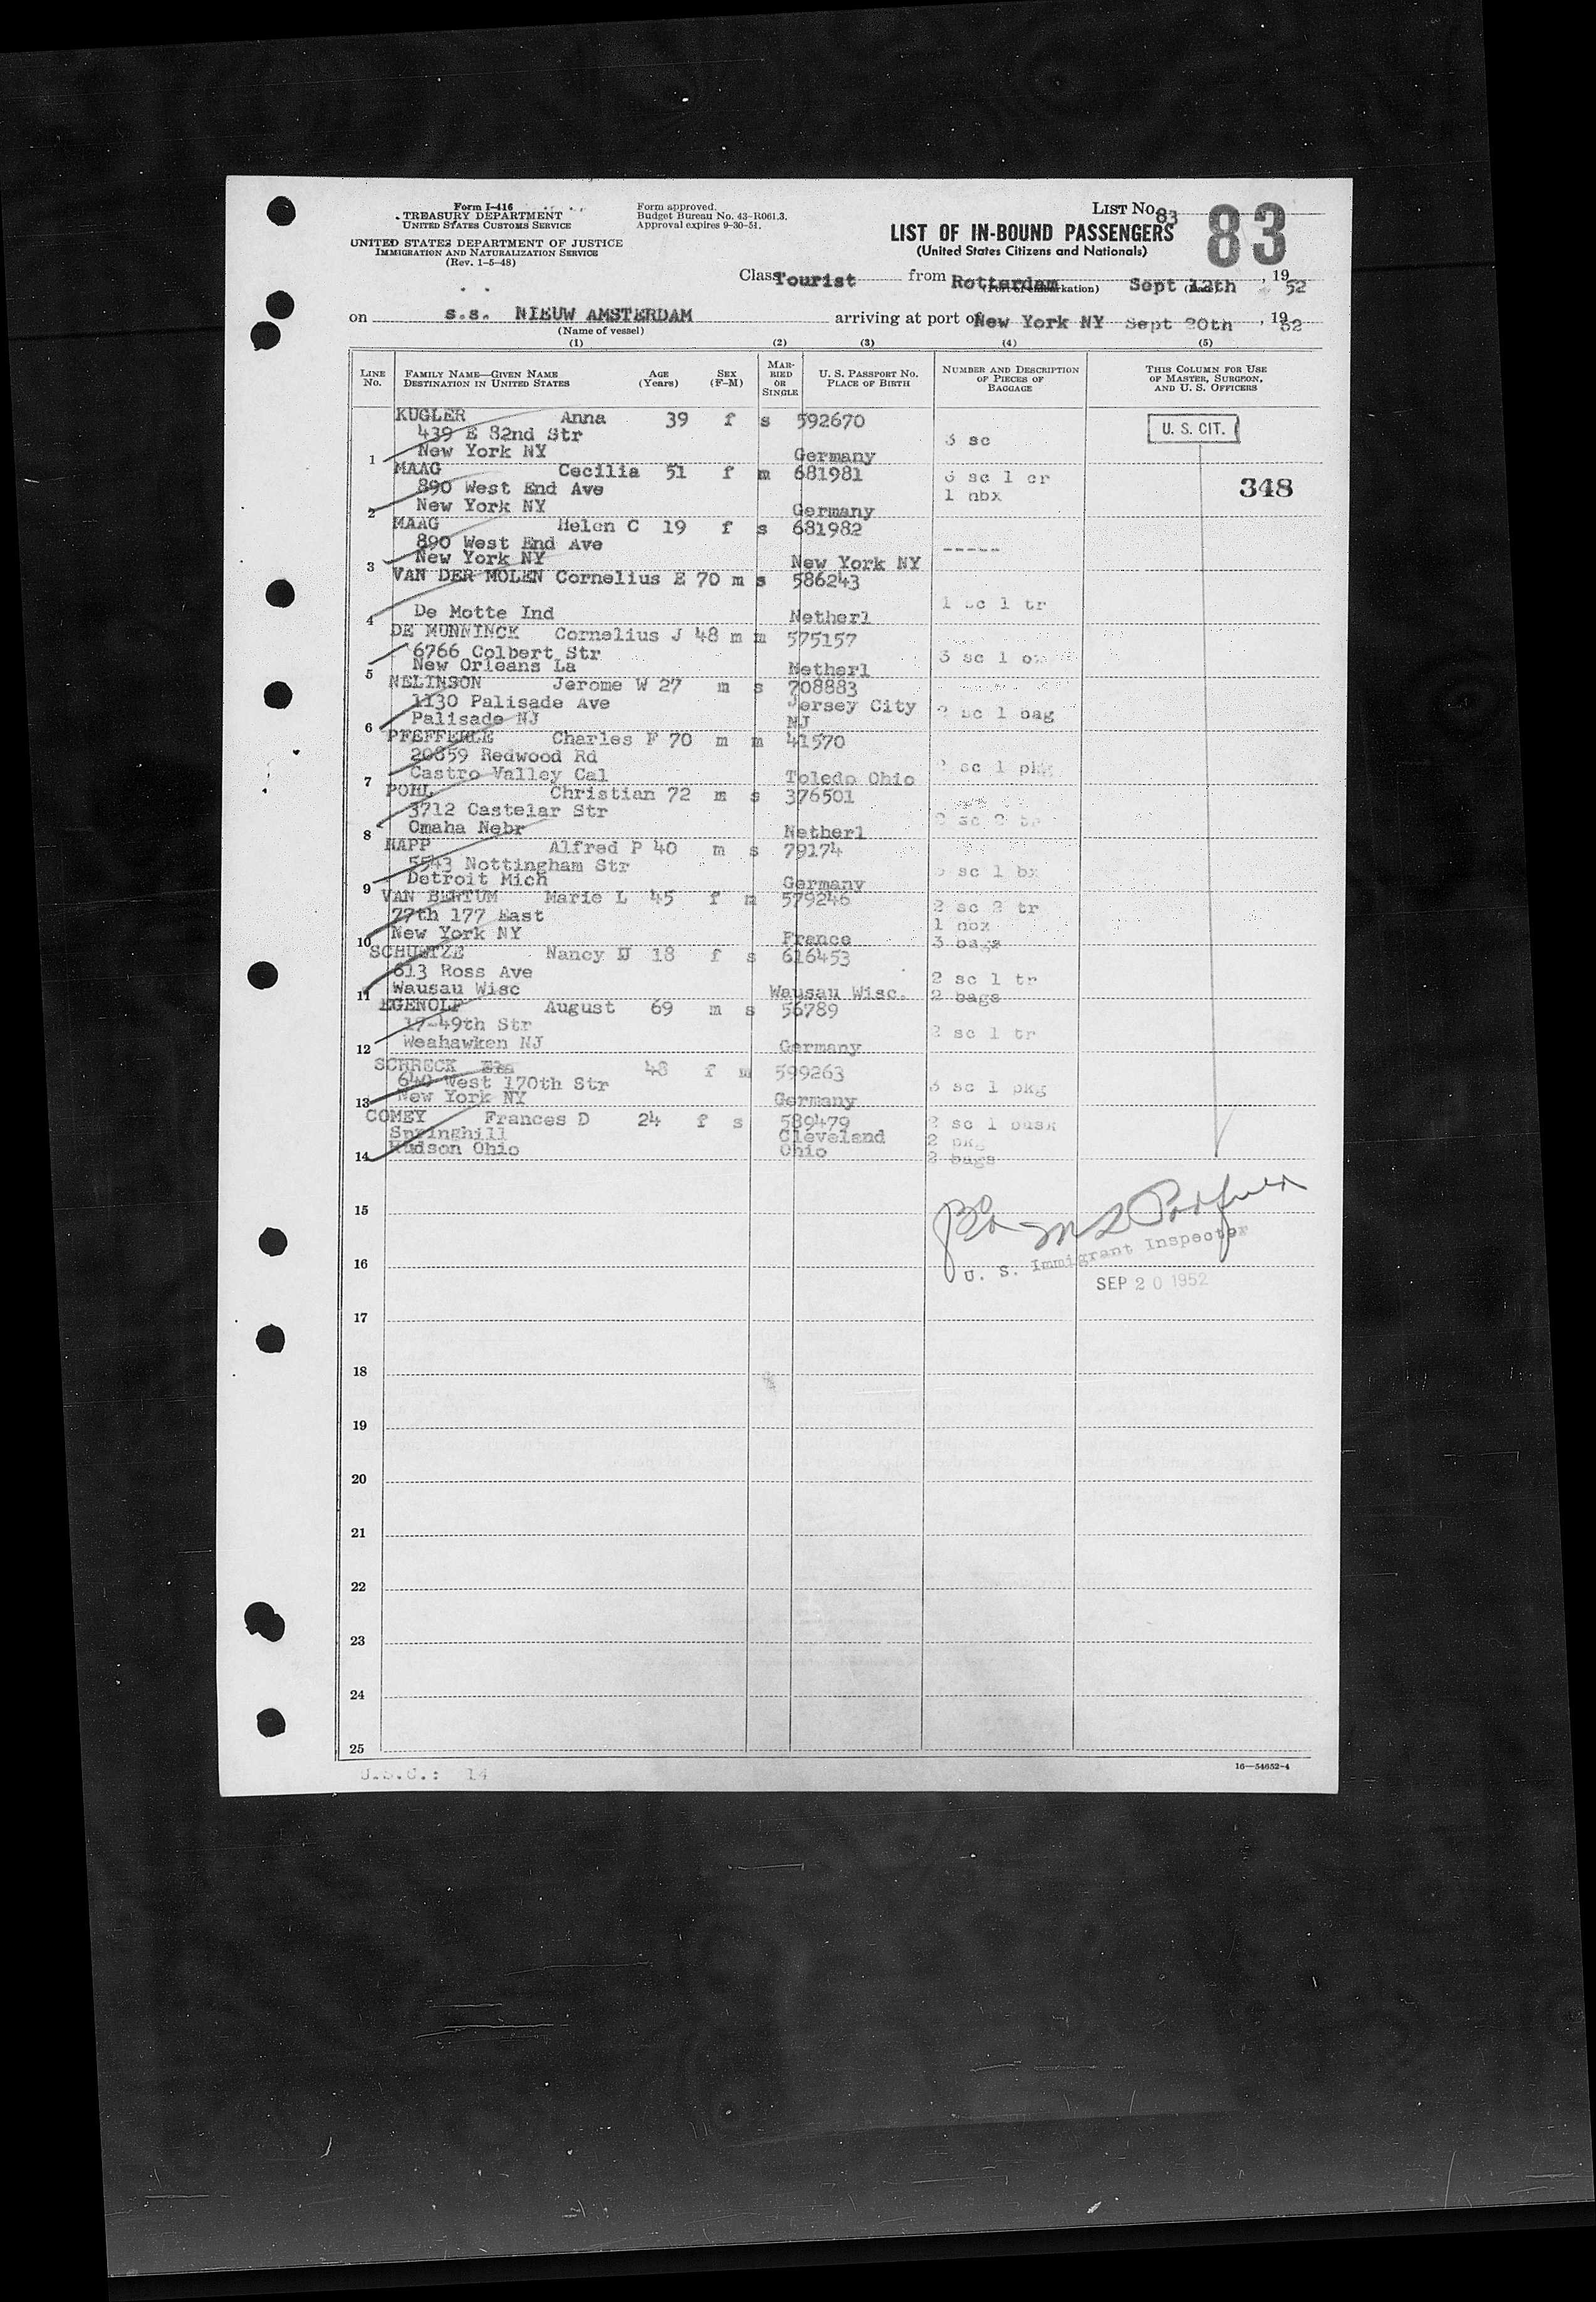 Form I-416
TREASURY DEPARTMENT
UNITED STATES CUSTOMS SERVICE
UNITED STATES DEPARTMENT OF JUSTICE
IMMIGRATION AND NATURALIZATION SERVICE
(Rev. 1-5-48)
Form approved.
Budget Bureau No. 43-R061.3.
Approval expires 9-30-51.
LIST No. 83
83
LIST OF IN-BOUND PASSENGERS
(United States Citizens and Nationals)
Class Tourist from Rotterdam Sept 12th, 19 52
(Port of embarkation) (Date)
on s.s. NIEUW AMSTERDAM arriving at port of New York NY Sept 20th, 19 52
(Name of vessel)
(1) (2) (3) (4) (5)
LINE No. FAMILY NAME—GIVEN NAME DESTINATION IN UNITED STATES AGE (Years) SEX (F-M) MARRIED OR SINGLE U. S. PASSPORT No. PLACE OF BIRTH NUMBER AND DESCRIPTION OF PIECES OF BAGGAGE THIS COLUMN FOR USE OF MASTER, SURGEON, AND U. S. OFFICERS
KUGLER Anna 39 f s 592670 U. S. CIT.
439 E 82nd Str 3 sc
1 New York NY Germany
MAAG Cecilia 51 f m 681981 3 sc 1 cr 348
890 West End Ave 1 hbx
2 New York NY Germany
MAAG Helen C 19 f s 681982
890 West End Ave -----
3 New York NY New York NY
VAN DER MOLEN Cornelius E 70 m s 586243
1 sc 1 tr
4 De Motte Ind Netherl
DE MUNNINCK Cornelius J 48 m m 575157
6766 Colbert Str 3 sc 1
5 New Orleans La Netherl
NELINSON Jerome W 27 m s 708883
1130 Palisade Ave Jersey City 2 sc 1 bag
6 Palisade NJ NJ
PFEFFERLE Charles F 70 m m 41570
20859 Redwood Rd 2 sc 1 pkg
7 Castro Valley Cal Toledo Ohio
POHL Christian 72 m s 376501
3712 Castelar Str 2 sc 2
8 Omaha Nebr Netherl
RAPP Alfred P 40 m s 79174
5543 Nottingham Str sc 1 bx
9 Detroit Mich Germany
VAN BERTUM Marie L 45 f m 579246 2 sc 2 tr
77th 177 East 1 hbx
10 New York NY France 3 bags
SCHUETZE Nancy 18 f s 616453
613 Ross Ave 2 sc 1 tr
11 Wausau Wisc Wausau Wisc. 2 bags
EGENOLF August 69 m s 56789
17-49th Str 2 sc 1 tr
12 Weahawken NJ Germany
SCHRECK 48 f m 599263
640 West 170th Str 3 sc 1 pkg
13 New York NY Germany
COMEY Frances D 24 f s 589479 2 sc 1 busk
Springhill Cleveland 2 pkg
14 Hudson Ohio Ohio 2 bags
15
U. S. Immigrant Inspector
16
SEP 20 1952
17
18
19
20
21
22
23
24
25
U.S.C.: 14
16—54652-4